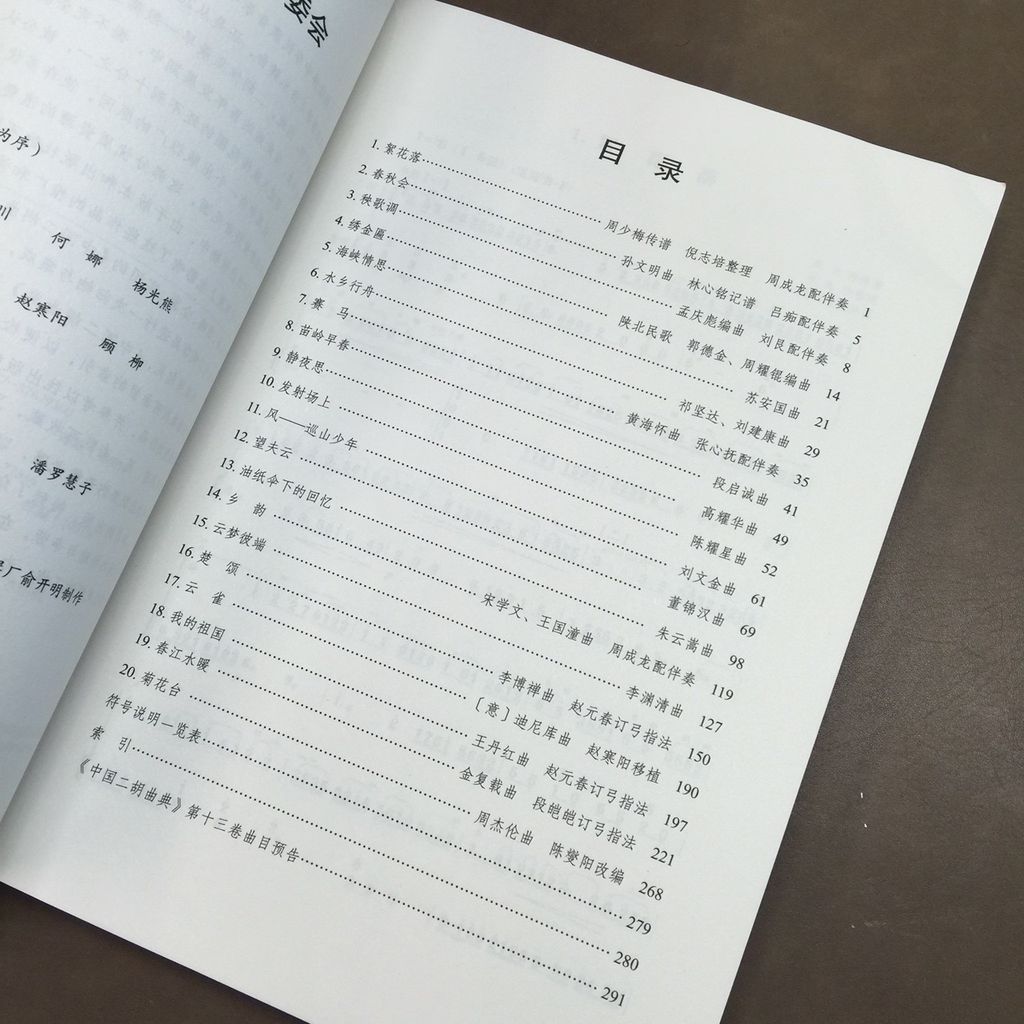 委会
为序）
川
何 娜 杨光熊
赵寒阳
顾 柳
潘罗慧子
厂俞开明制作
目 录
1. 絮花落……周少梅传谱 倪志培整理 周成龙配伴奏 1
2. 春秋会……孙文明曲 林心铭记谱 吕痴配伴奏 5
3. 秧歌调……孟庆彪编曲 刘艮配伴奏 8
4. 绣金匾……陕北民歌 郭德金、周耀锟编曲 14
5. 海峡情思……苏安国曲 21
6. 水乡行舟……祁坚达、刘建康曲 29
7. 赛 马……黄海怀曲 张心抚配伴奏 35
8. 苗岭早春……段启诚曲 41
9. 静夜思……高耀华曲 49
10. 发射场上……陈耀星曲 52
11. 风——巡山少年……刘文金曲 61
12. 望夫云……董锦汉曲 69
13. 油纸伞下的回忆……朱云嵩曲 98
14. 乡 韵……宋学文、王国潼曲 周成龙配伴奏 119
15. 云梦彼端……李渊清曲 127
16. 楚 颂……李博禅曲 赵元春订弓指法 150
17. 云 雀……〔意〕迪尼库曲 赵寒阳移植 190
18. 我的祖国……王丹红曲 赵元春订弓指法 197
19. 春江水暖……金复载曲 段皑皑订弓指法 221
20. 菊花台……周杰伦曲 陈燮阳改编 268
符号说明一览表……279
索 引……280
《中国二胡曲典》第十三卷曲目预告……291